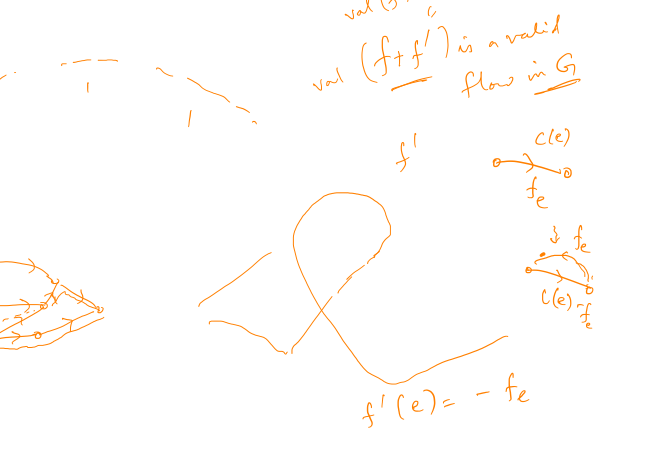 val (f
val (f+f') is a valid
flow in G
f'
c(e)
fe
fe
c(e)-fe
f'(e) = - fe